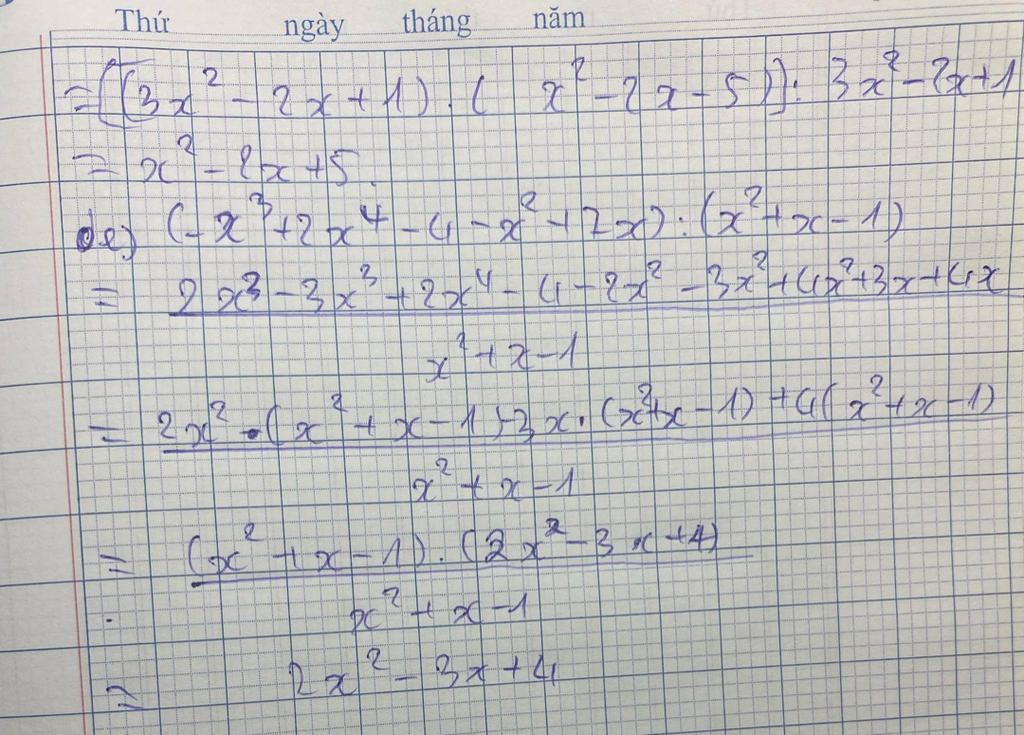 Thứ ngày tháng năm
= [(3x² - 2x + 1) . ( x² - 2x - 5)] : 3x² - 2x + 1
= x² - 2x + 5.
e) (-x³ + 2x⁴ - 4 - x² + 7x) : (x² + x - 1)
= 2x³ - 3x³ + 2x⁴ - 4 - 2x² - 3x² + 4x² + 3x + 4x
x² + x - 1
= 2x² . (x² + x - 1) - 3x . (x² + x - 1) + 4(x² + x - 1)
x² + x - 1
= (x² + x - 1) . (2x² - 3x + 4)
x² + x - 1
= 2x² - 3x + 4